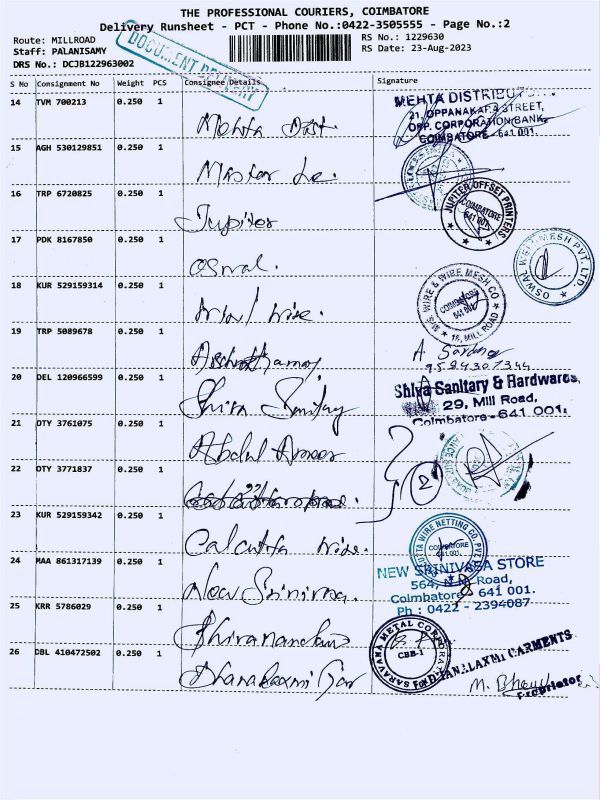 THE PROFESSIONAL COURIERS, COIMBATORE
Delivery Runsheet - PCT - Phone No.:0422-3505555 - Page No.:2
Route: MILLROAD
Staff: PALANISAMY
DRS No.: DCJB122963002
RS No.: 1229630
RS Date: 23-Aug-2023
DOCUMENT DELIVERY
S No Consignment No Weight PCS Consignee Details Signature
14 TVM 700213 0.250 1
Mehta Dist.
MEHTA DISTRIBUT
21, OPPANAKARA STREET,
OPP. CORPORATION BANK,
COIMBATORE - 641 001.
15 AGH 530129851 0.250 1
Master
16 TRP 6720825 0.250 1
Jupiter
JUPITER OFFSET PRINTERS
COIMBATORE
641 001.
17 PDK 8167850 0.250 1
Oswal.
OSWAL MESH PVT. LTD
18 KUR 529159314 0.250 1
wire.
M.S. WIRE & WIRE MESH CO
COIMBATORE
641 001
18, MILL ROAD
19 TRP 5089678 0.250 1
A
9524307344
20 DEL 120966599 0.250 1
Shiva Sanitary
Shiva Sanitary & Hardwares,
29, Mill Road,
Coimbatore-641 001.
21 OTY 3761075 0.250 1
Abdul Ameer
2
22 OTY 3771837 0.250 1
23 KUR 529159342 0.250 1
Calcutta wire.
CALCUTTA WIRE NETTING CO. PVT.
COIMBATORE
641 001.
24 MAA 861317139 0.250 1
New Srinivasa.
NEW SRINIVASA STORE
564, Road,
Coimbatore 641 001.
Ph : 0422 - 2394087
25 KRR 5786029 0.250 1
SARAVANA METAL CORPORAT
CBE-1
26 DBL 410472502 0.250 1
Dhanalaxmi Gar
For DHANALAXMI GARMENTS
M.
Proprietor